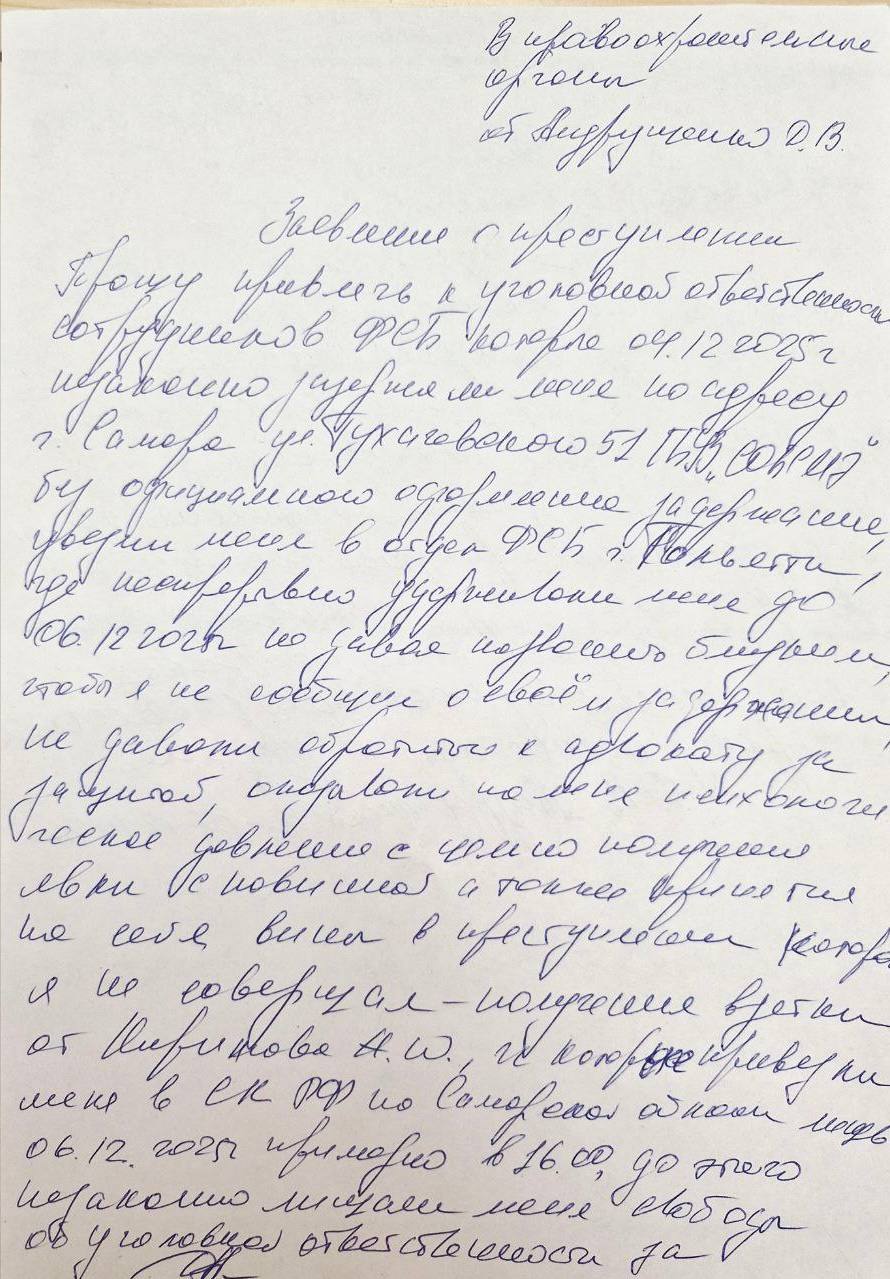 В правоохранительные
органы
от Андрущенко Д.В.
Заявление о преступлении
Прошу привлечь к уголовной ответственности
сотрудников ФСБ которые 04.12 2025г
незаконно задержали меня по адресу
г. Самара ул. Тухачевского 51
без официального оформления задержания,
увезли меня в отдел ФСБ г. Тольятти,
где непрерывно удерживали меня до
06.12 2025г не давая позвонить близким,
чтобы я не сообщил о своём задержании,
не давали обратиться к адвокату за
защитой, оказывали на меня психологи
ческое давление с целью получения
явки с повинной а также принятия
на себя вины в преступлении которое
я не совершал – получение взятки
от А.Ю., привезли
меня в СК РФ по Самарской области лишь
06.12. 2025г примерно в 16.00, до этого
незаконно лишали меня свободы
об уголовной ответственности за